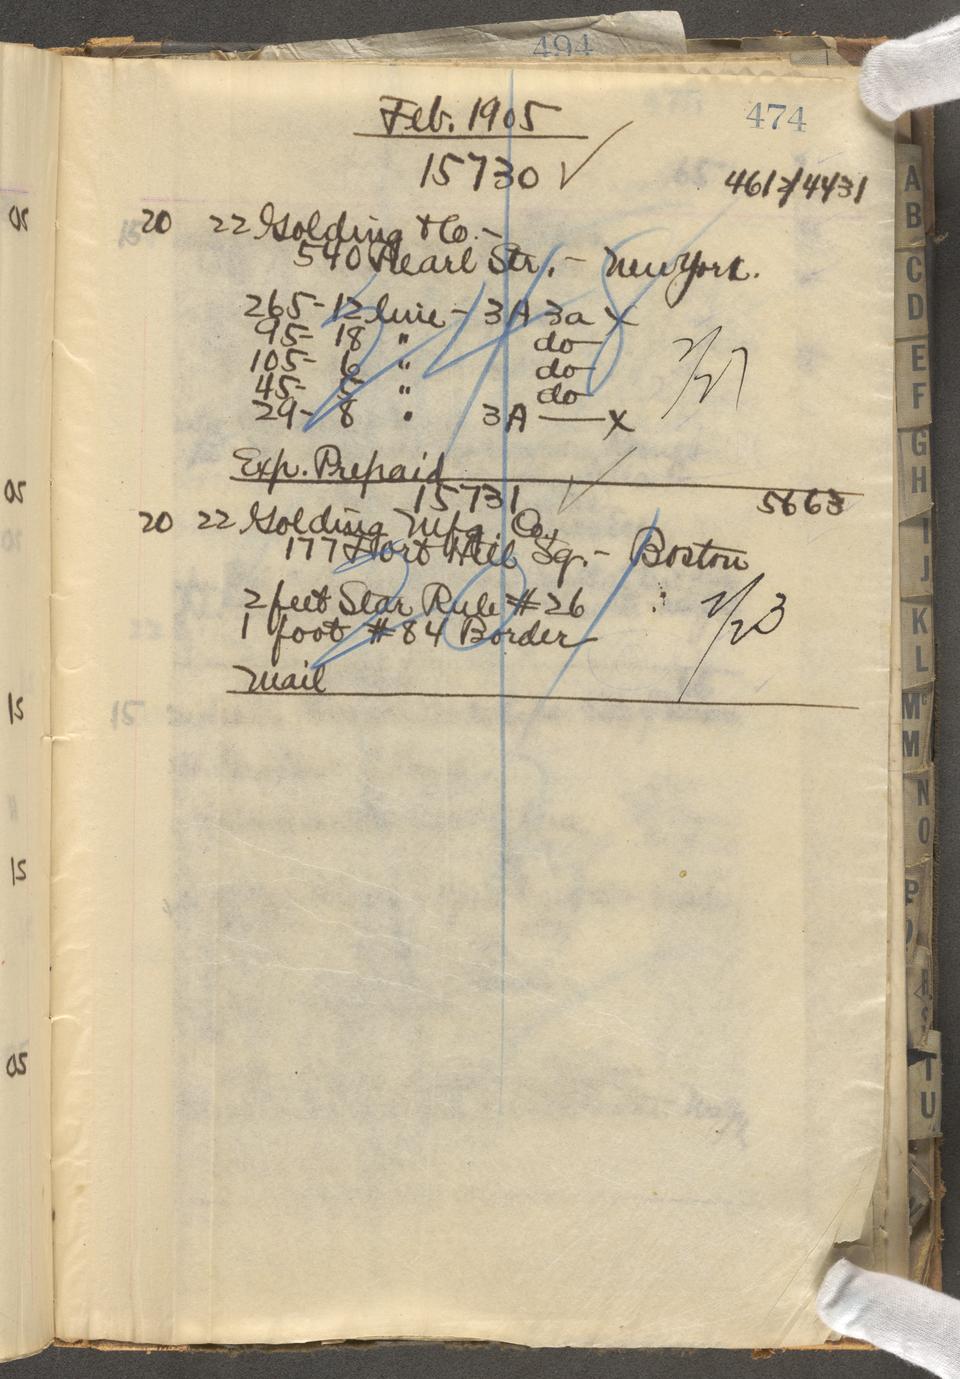 494
474
Feb. 1905
15730 ✓
4612/4431
20 22 Golding & Co. -
540 Pearl Str. - New York.
265 - 12 line - 3A 3a X
95 - 18 " do
105 - 6 " do
45 - 5 " do
29 - 8 " 3A — X
2/27
Exp. Prepaid
15731 ✓
5663
20 22 Golding Mfg Co,
177 Fort Hill Sq. - Boston
2 feet Star Rule # 26
1 foot # 84 Border
2/23
Mail
05
05
15
15
05
A
B
C
D
E
F
G
H
I
J
K
L
Mc
M
N
O
P
R
S
T
U